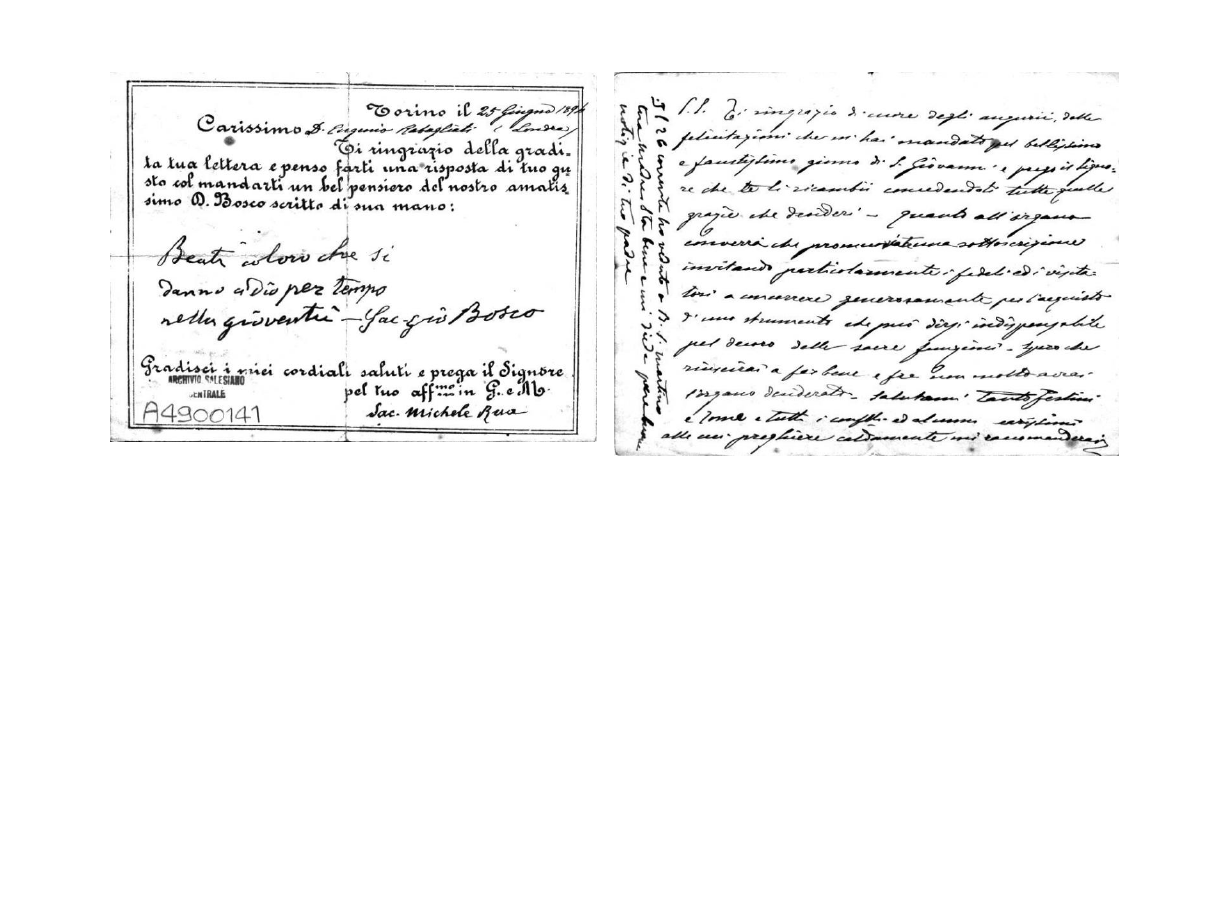 Torino il 25 Giugno 189
Carissimo D. Eugenio Rabagliati (Londra)
Ti ringrazio della gradi-
ta tua lettera e penso farti una risposta di tuo gu
sto col mandarti un bel pensiero del nostro amatis
simo D. Bosco scritto di sua mano:
Beati coloro che si
danno a dio per tempo
nella gioventù – Sac. Gio Bosco
Gradisci i miei cordiali saluti e prega il Signore
pel tuo aff.mo in G. e M.
Sac. Michele Rua
ARCHIVIO SALESIANO
CENTRALE
A4900141
P.S. Ti ringrazio di cuore degli augurii, delle
felicitazioni che mi hai mandato pel bellissimo
e faustissimo giorno di S. Giovanni e prego il Signo-
re che te li ricambii concedendoti tutte quelle
grazie che desideri – quanto all'organo
converrà che promuoviate una sottoscrizione
invitando particolarmente i fedeli ed i visita-
tori a concorrere generosamente per l'acquisto
d'uno strumento che può dirsi indispensabile
pel decoro delle sacre funzioni – spero che
riuscirai a far bene e fra non molto avrai
l'organo desiderato – salutami tanto
e tutti i ed alunni carissimi
alle cui preghiere caldamente mi raccomanderai
Il 26 corrente ho veduto a B. S. Martino
tua madre sta bene e mi diede pure buone
notizie di tuo padre